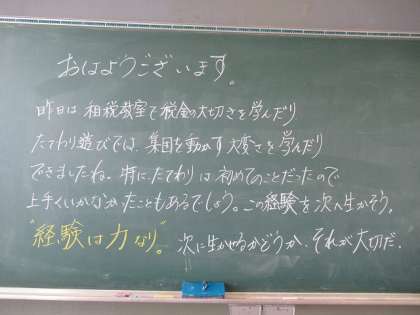 おはようございます。
昨日は租税教室で税金の大切さを学んだり
たてわり遊びでは、集団を動かす大変さを学んだり
できましたね。特に、たてわりは初めてのことだったので
上手くいかなかったこともあるでしょう。この経験を次へ生かそう。
"経験は力なり"。次に生かせるかどうか、それが大切だ。